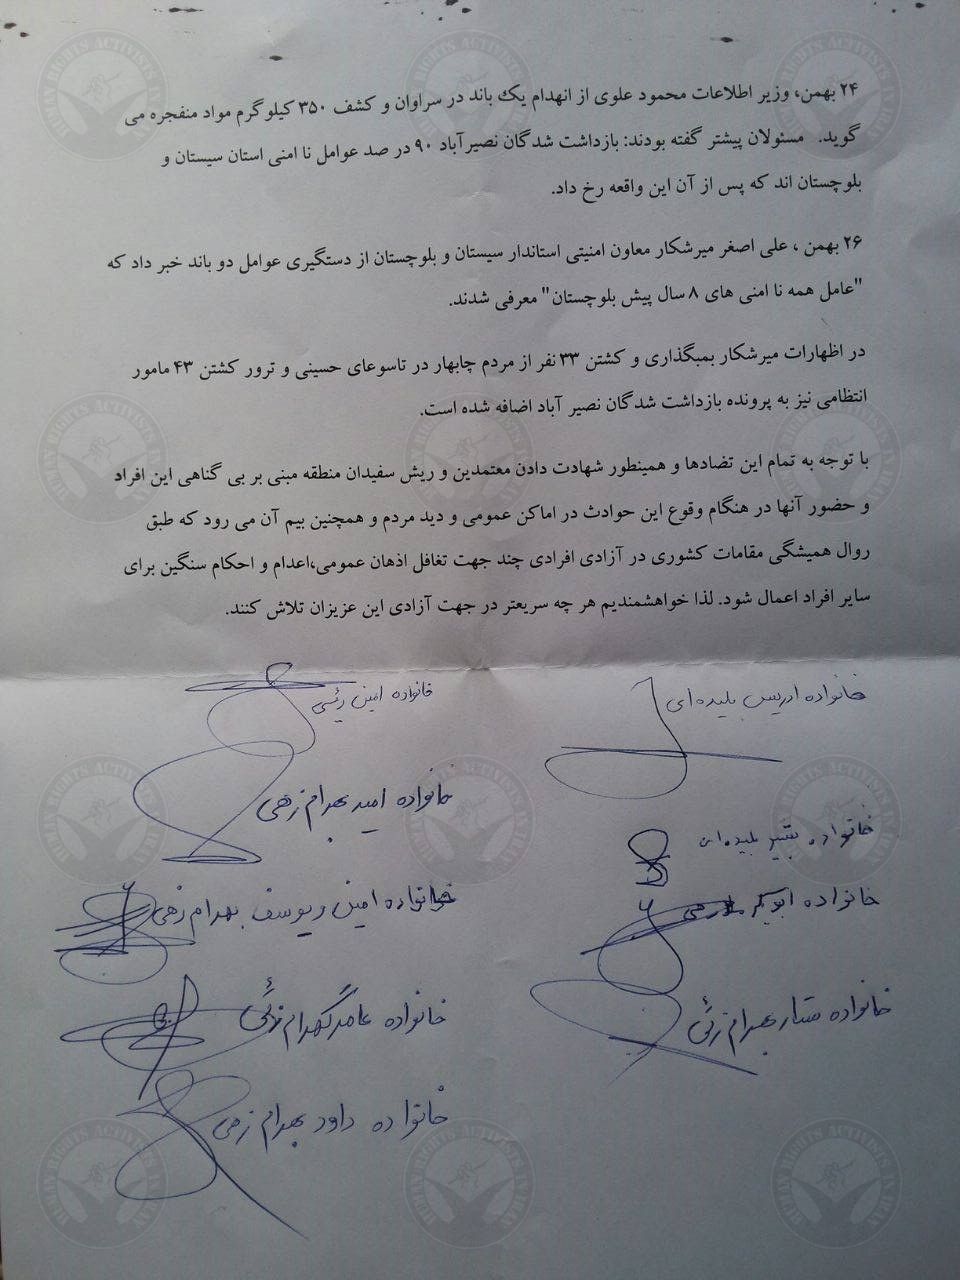 ۲۴ بهمن، وزیر اطلاعات محمود علوی از انهدام یک باند در سراوان و کشف ۳۵۰ کیلوگرم مواد منفجره می
گوید. مسئولان پیشتر گفته بودند: بازداشت شدگان نصیرآباد ۹۰ در صد عوامل نا امنی استان سیستان و
بلوچستان اند که پس از آن این واقعه رخ داد.
۲۶ بهمن ، علی اصغر میرشکار معاون امنیتی استاندار سیستان و بلوچستان از دستگیری عوامل دو باند خبر داد که
"عامل همه نا امنی های ۸ سال پیش بلوچستان" معرفی شدند.
در اظهارات میرشکار بمبگذاری و کشتن ۳۳ نفر از مردم چابهار در تاسوعای حسینی و ترور کشتن ۴۳ مامور
انتظامی نیز به پرونده بازداشت شدگان نصیر آباد اضافه شده است.
با توجه به تمام این تضادها و همینطور شهادت دادن معتمدین و ریش سفیدان منطقه مبنی بر بی گناهی این افراد
و حضور آنها در هنگام وقوع این حوادث در اماکن عمومی و دید مردم و همچنین بیم آن می رود که طبق
روال همیشگی مقامات کشوری در آزادی افرادی چند جهت تغافل اذهان عمومی،اعدام و احکام سنگین برای
سایر افراد اعمال شود. لذا خواهشمندیم هر چه سریعتر در جهت آزادی این عزیزان تلاش کنند.
خانواده ادریس بلیده ای
خانواده امین رئیسی
خانواده امید بهرام زهی
خانواده بشیر بلیده ای
خانواده امین و یوسف بهرام زهی
خانواده ابوبکر
خانواده ستار بهرام زئی
خانواده
خانواده داود بهرام زهی
HUMAN RIGHTS ACTIVISTS IN IRAN